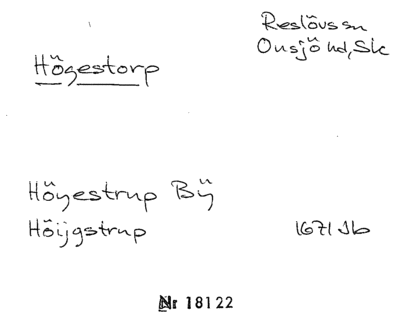 Reslövs sn
Onsjö hd, Sk
Högestorp
Höyestrup Bÿ
Höijgstrup 1671 Jb
Nr 18122